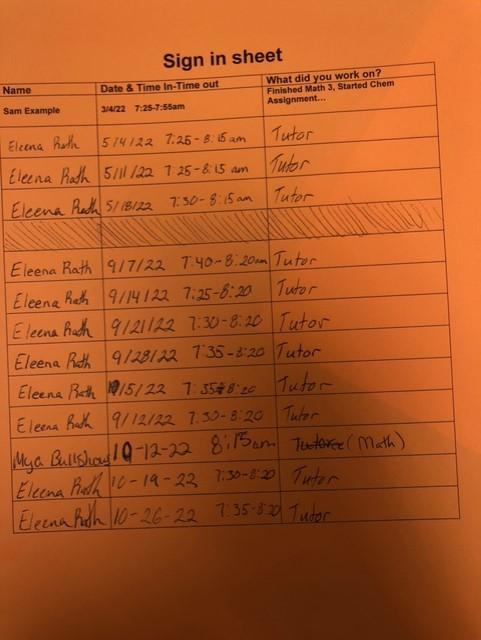 Sign in sheet
Name Date & Time In-Time out What did you work on?
Sam Example 3/4/22 7:25-7:55am Finished Math 3, Started Chem
Assignment...
Eleena Rath 5/4/22 7:25-8:15am Tutor
Eleena Rath 5/11/22 7:25-8:15am Tutor
Eleena Rath 5/18/22 7:30-8:15am Tutor
Eleena Rath 9/7/22 7:40-8:20am Tutor
Eleena Rath 9/14/22 7:25-8:20 Tutor
Eleena Rath 9/21/22 7:30-8:20 Tutor
Eleena Rath 9/28/22 7:35-8:20 Tutor
Eleena Rath /5/22 7:35-8:20 Tutor
Eleena Rath 9/12/22 7:30-8:20 Tutor
Mya 10-12-22 8:15am (Math)
Eleena Rath 10-19-22 7:30-8:20 Tutor
Eleena Rath 10-26-22 7:35-8:20 Tutor